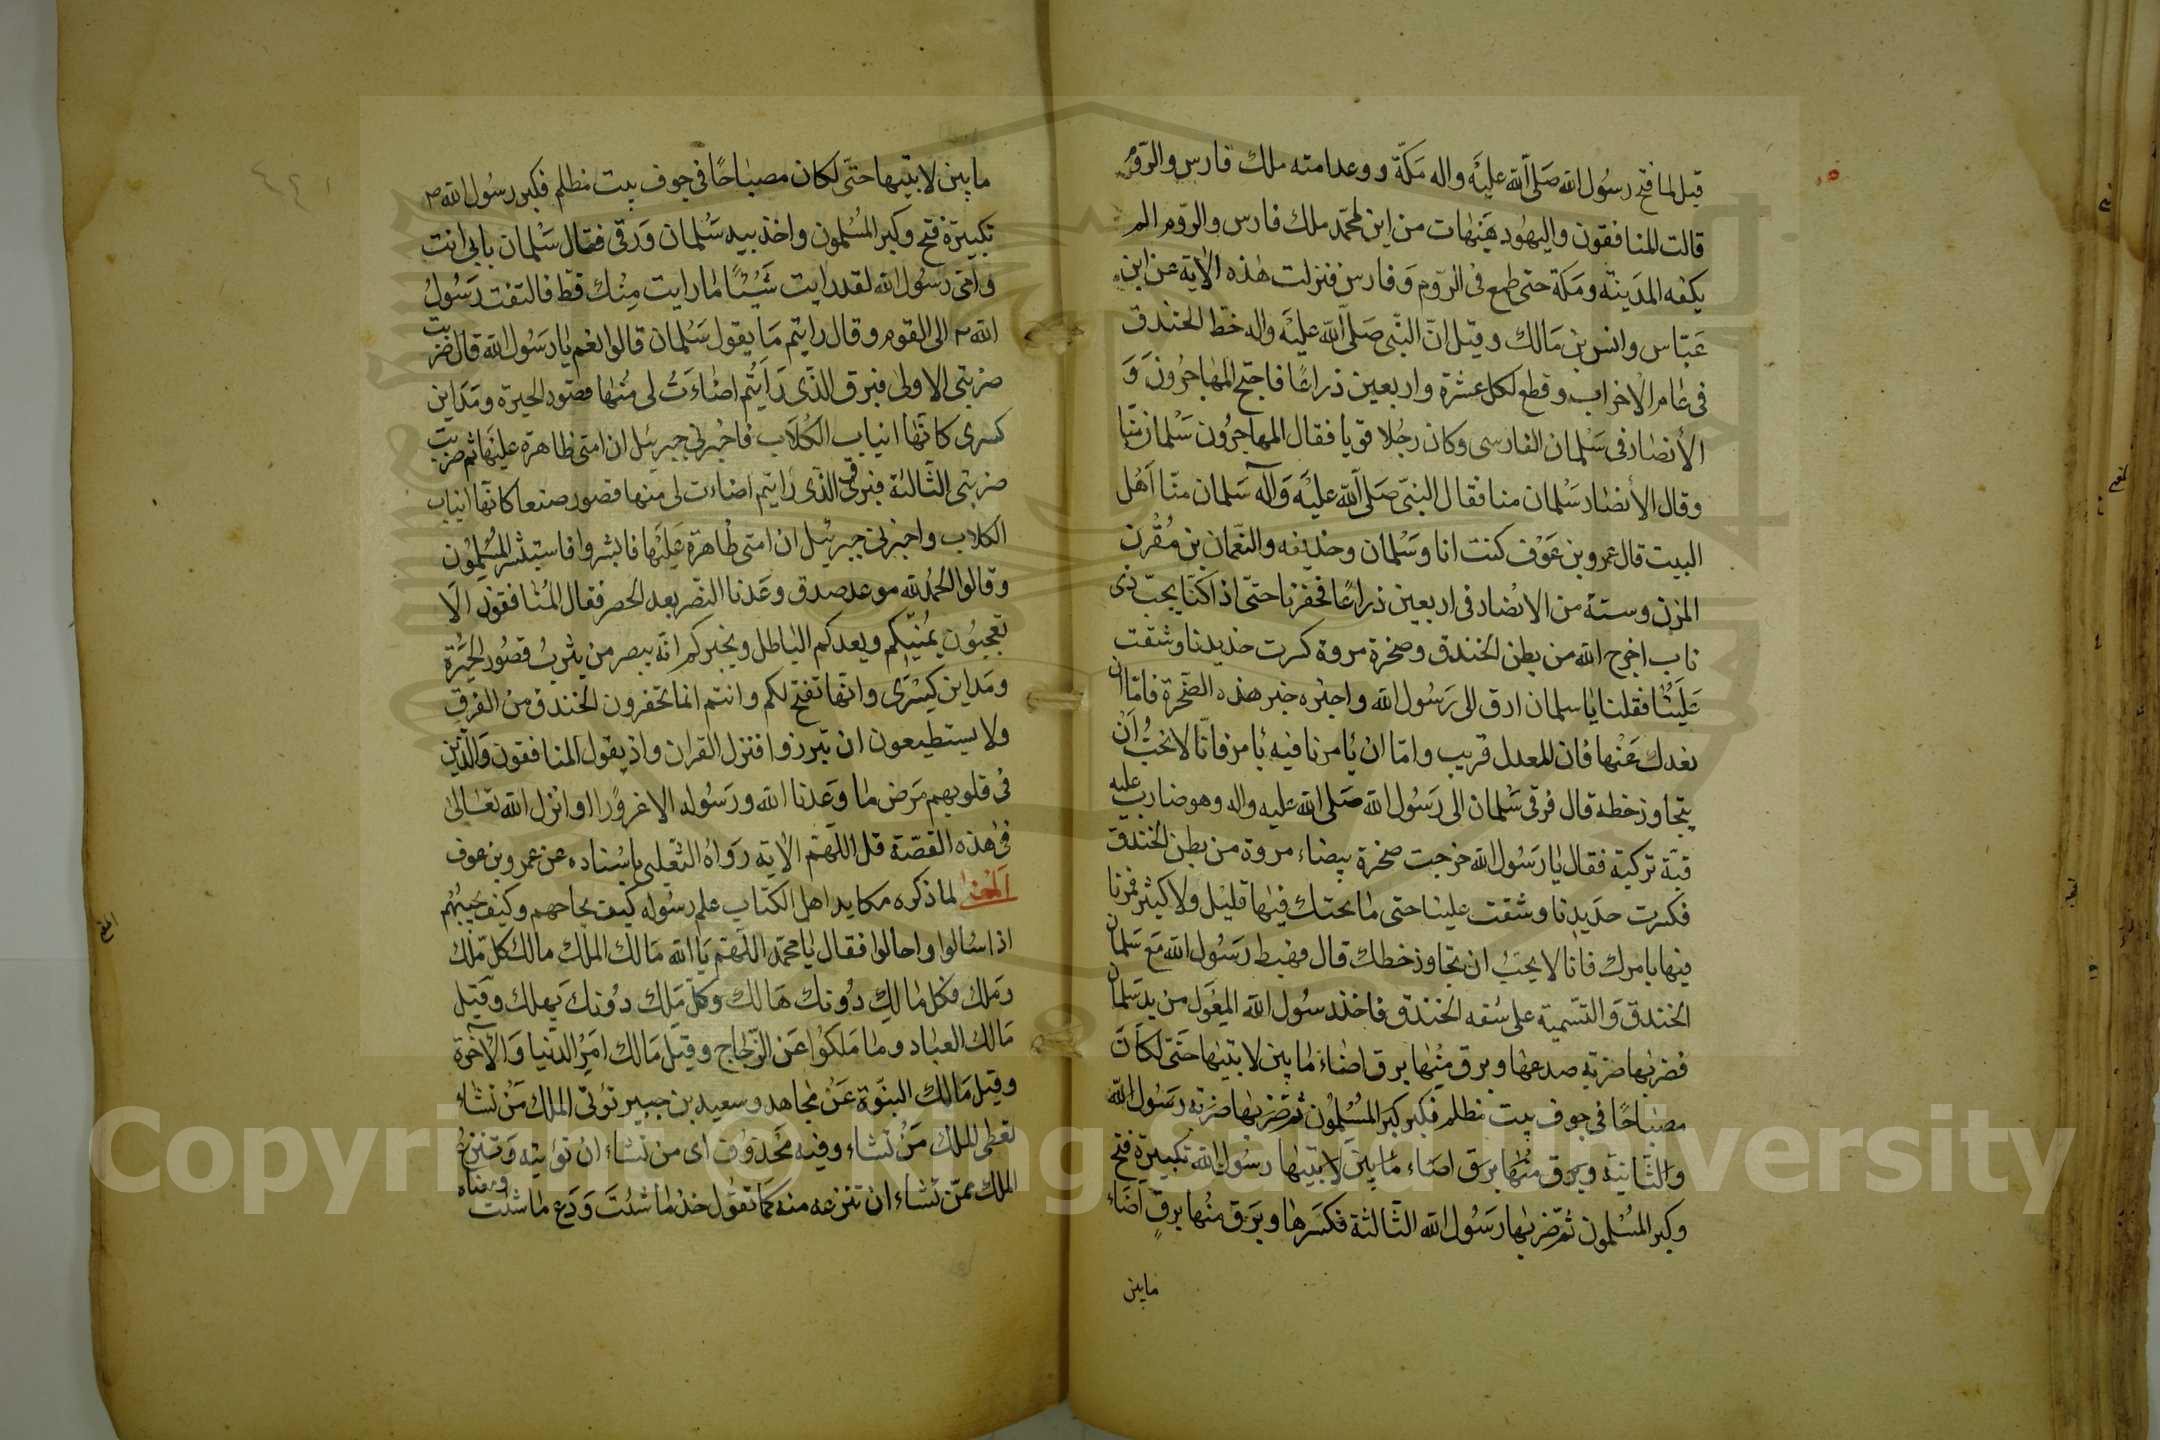 قيل لما فتح رسول الله صلى الله عليه واله مكة ووعد امته ملك فارس والروم
قالت المنافقون واليهود هيهات من اين لمحمد ملك فارس والروم الم
يكفه المدينة ومكة حتى طمع فى الروم وفارس فنزلت هذه الاية عن ابن
عباس وانس بن مالك وقيل ان النبى صلى الله عليه واله خط الخندق
فى عام الاحزاب وقطع لكل عشرة واربعين ذراعا فاحتج المهاجرون و
الأنصار فى سلمان الفارسى وكان رجلا قويا فقال المهاجرون سلمان منا
وقال الأنصار سلمان منا فقال النبى صلى الله عليه وآله سلمان منا اهل
البيت قال عمرو بن عوف كنت انا وسلمان وحذيفه والنعمان بن مقرن
المزنى وستة من الانصار فى اربعين ذراعا فحفرنا حتى اذا كنا بجب ذى
ناب اخرج الله من بطن الخندق وصخرة مروة كسرت حديدنا وشقت
علينا فقلنا يا سلمان ارق الى رسول الله واخبره خبر هذه الصخرة فاما ان
نعدل عنها فان المعدل قريب واما ان يأمرنا فيه بأمر فانا لا نحب أن
يتجاوز خطه قال فرقى سلمان الى رسول الله صلى الله عليه واله وهو ضارب عليه
قبة تركية فقال يا رسول الله خرجت صخرة بيضاء مروة من بطن الخندق
فكسرت حديدنا وشقت علينا حتى ما يحتك فيها قليل ولا كثير فمرنا
فيها بامرك فانا لا يحب ان نجاوز خطك قال فهبط رسول الله مع سلمان
الخندق والتسمية على شفه الخندق فاخذ رسول الله المعول من يد سلمان
فضربها ضربة صدعها وبرق منها برق اضاء ما بين لابتيها حتى لكان
مصباحا فى جوف بيت مظلم فكبر كبر المسلمون ثم ضربها ضربة رسول الله
والثانية وبرق منها برق اضاء ما بين لابتيها رسول الله تكبيرة فتح
وكبر المسلمون ثم ضربها رسول الله الثالثة فكسرها وبرق منها برق اضاء
مابين
ما بين لابتيها حتى لكان مصباحا فى جوف بيت مظلم فكبر رسول الله ص
تكبيرة فتح وكبر المسلمون واخذ بيد سلمان ورقى فقال سلمان بابى انت
وامى رسول الله لقد رايت شيئا ما رايت مثلك قط فالتفت رسول
الله ص الى القوم وقال رايتم ما يقول سلمان قالوا نعم يا رسول الله قال ضربت
ضربتى الاولى فبرق الذى رأيتم اضاءت لى منها قصور الحيرة ومداين
كسرى كانها انياب الكلاب فاخبرنى جبريئل ان امتى ظاهرة عليها ثم ضربت
ضربتى الثالثة فبرق الذى رأيتم اضاءت لى منها قصور صنعا كانها انياب
الكلاب واخبرنى جبريئل ان امتى ظاهرة عليها فابشروا فاستبشر المسلمون
وقالوا الحمد لله موعد صدق وعدنا النصر بعد الحصر فقال المنافقون الا
تعجبون يمنيكم ويعدكم الباطل ويخبركم انه يبصر من يثرب قصور الحيرة
ومداين كسرى وانها تفتح لكم وانتم انما تحفرون الخندق من الفرق
ولا يستطيعون ان تبرزوا فنزل القران واذ يقول المنافقون والذين
فى قلوبهم مرض ما وعدنا الله ورسوله الا غرورا وانزل الله تعالى
فى هذه القصة قل اللهم الاية رواه الثعلبى باسناده عن عمرو بن عوف
المعنى لما ذكره مكايد اهل الكتاب علم رسوله كيف يحاجهم وكيف يجيبهم
اذا سالوا واحالوا فقال يا محمد اللهم يا الله مالك الملك مالك كل ملك
وملك فكل مالك دونك هالك وكل ملك دونك يهلك وقيل
مالك العباد وما ملكوا عن الزجاج وقيل مالك امر الدنيا والآخرة
وقيل مالك النبوة عن مجاهد وسعيد بن جبير تؤتى الملك من تشاء
تعطى الملك من تشاء وفيه محذوف اى من تشاء ان تؤتيه وتنزع
الملك ممن تشاء ان تنزعه منه كما تقول خذ ما شئت ودع ما شئت ومعناه
Copyright © King Saud University